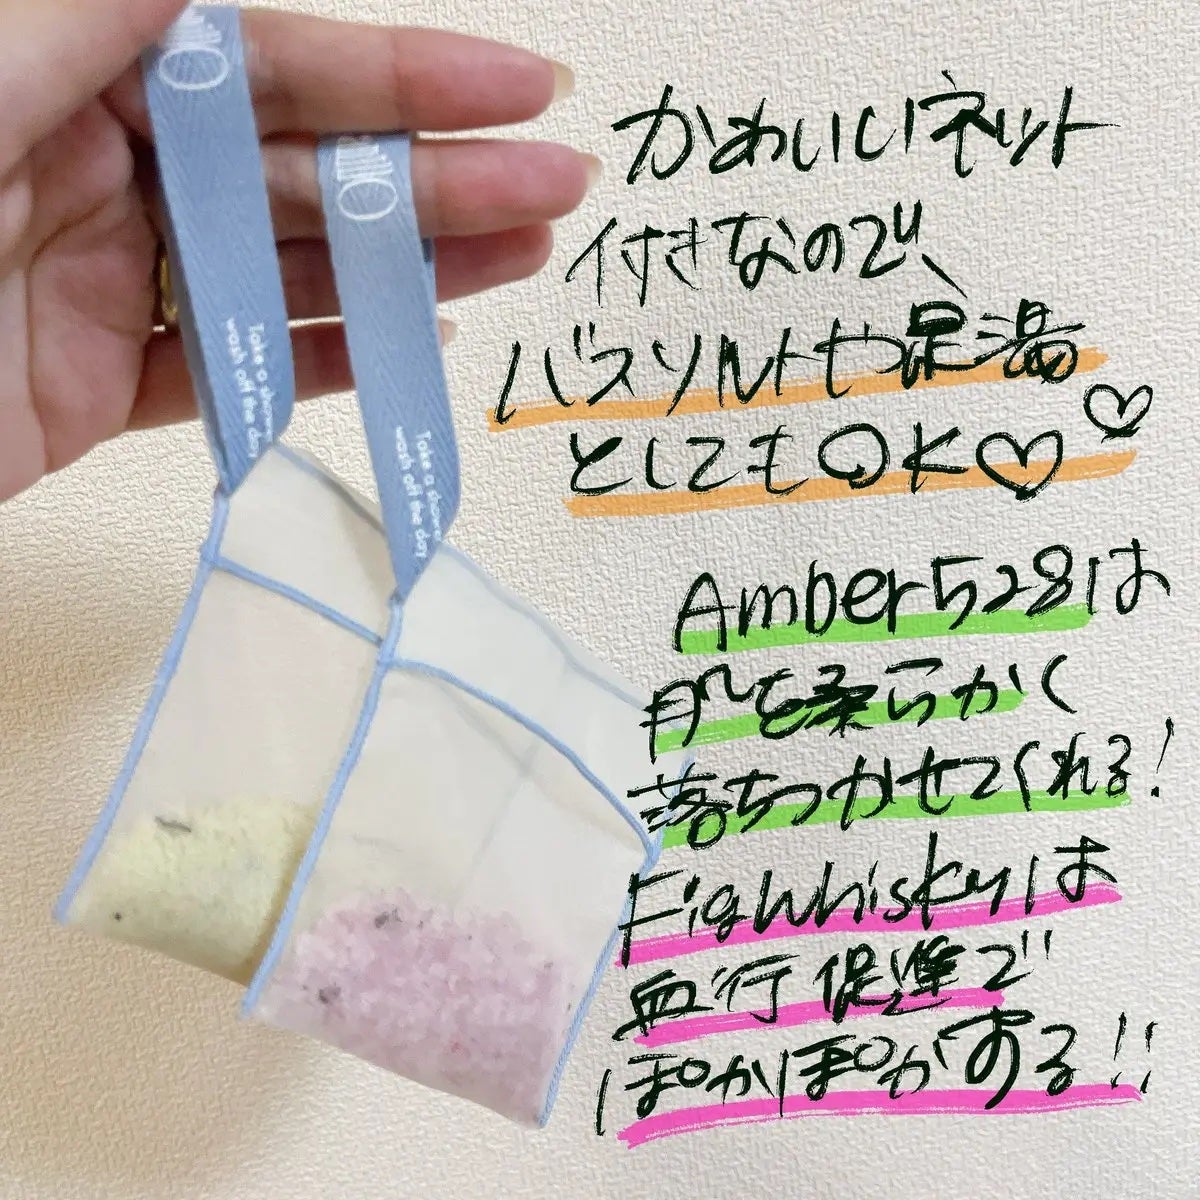 かわいいネット
付きなので、
バスソルトや足湯
としてもOK♡♡
Amber528は
肌を柔らかく
落ちつかせてくれる!
FigWhiskyは
血行促進で
ぽかぽかがする!!
Take a shower
wash off the day
Take a shower
wash off the day